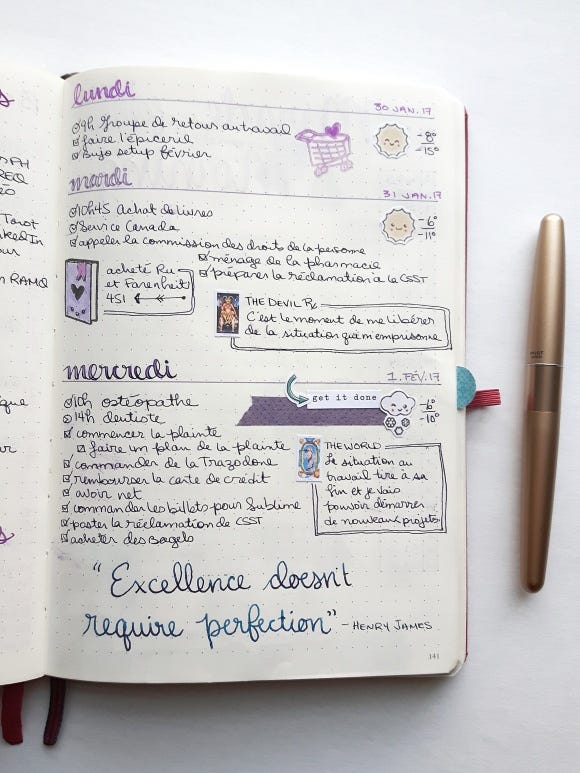 lundi
30 JAN. 17
9h Groupe de retour au travail
faire l'épicerie
Bujo setup février
-8°
-15°
mardi
31 JAN. 17
10h45 Achat de livres
Service Canada
appeler la commission des droits de la personne
ménage de la pharmacie
préparer la réclamation à la CSST
-6°
-11°
acheté Ru
et Farenheit
451
THE DEVIL Rx
C'est le moment de me libérer
de la situation qui m'emprisonne
mercredi
1. FÉV. 17
10h ostéopathe
14h dentiste
commencer la plainte
faire un plan de la plainte
commander de la Trazodone
rembourser la carte de crédit
avoir net
commander les billets pour Sublime
poster la réclamation de CSST
acheter des Bagels
get it done
-6°
-10°
THE WORLD
La situation au
travail tire à sa
fin et je vais
pouvoir démarrer
de nouveaux projets
"Excellence doesn't
require perfection"
- HENRY JAMES
141
Tarot
RAMQ